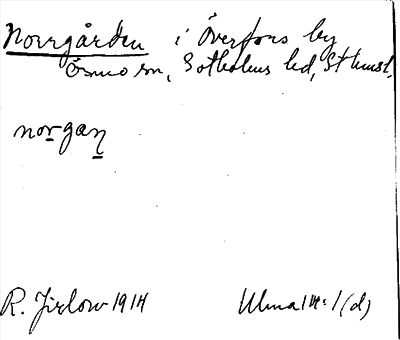 Norrgården i Överfors by
Ösmo sn, Sotholms hd, Sthmsl.
norgaɳ
R. Jirlow 1914
Ulma 14:1(d)